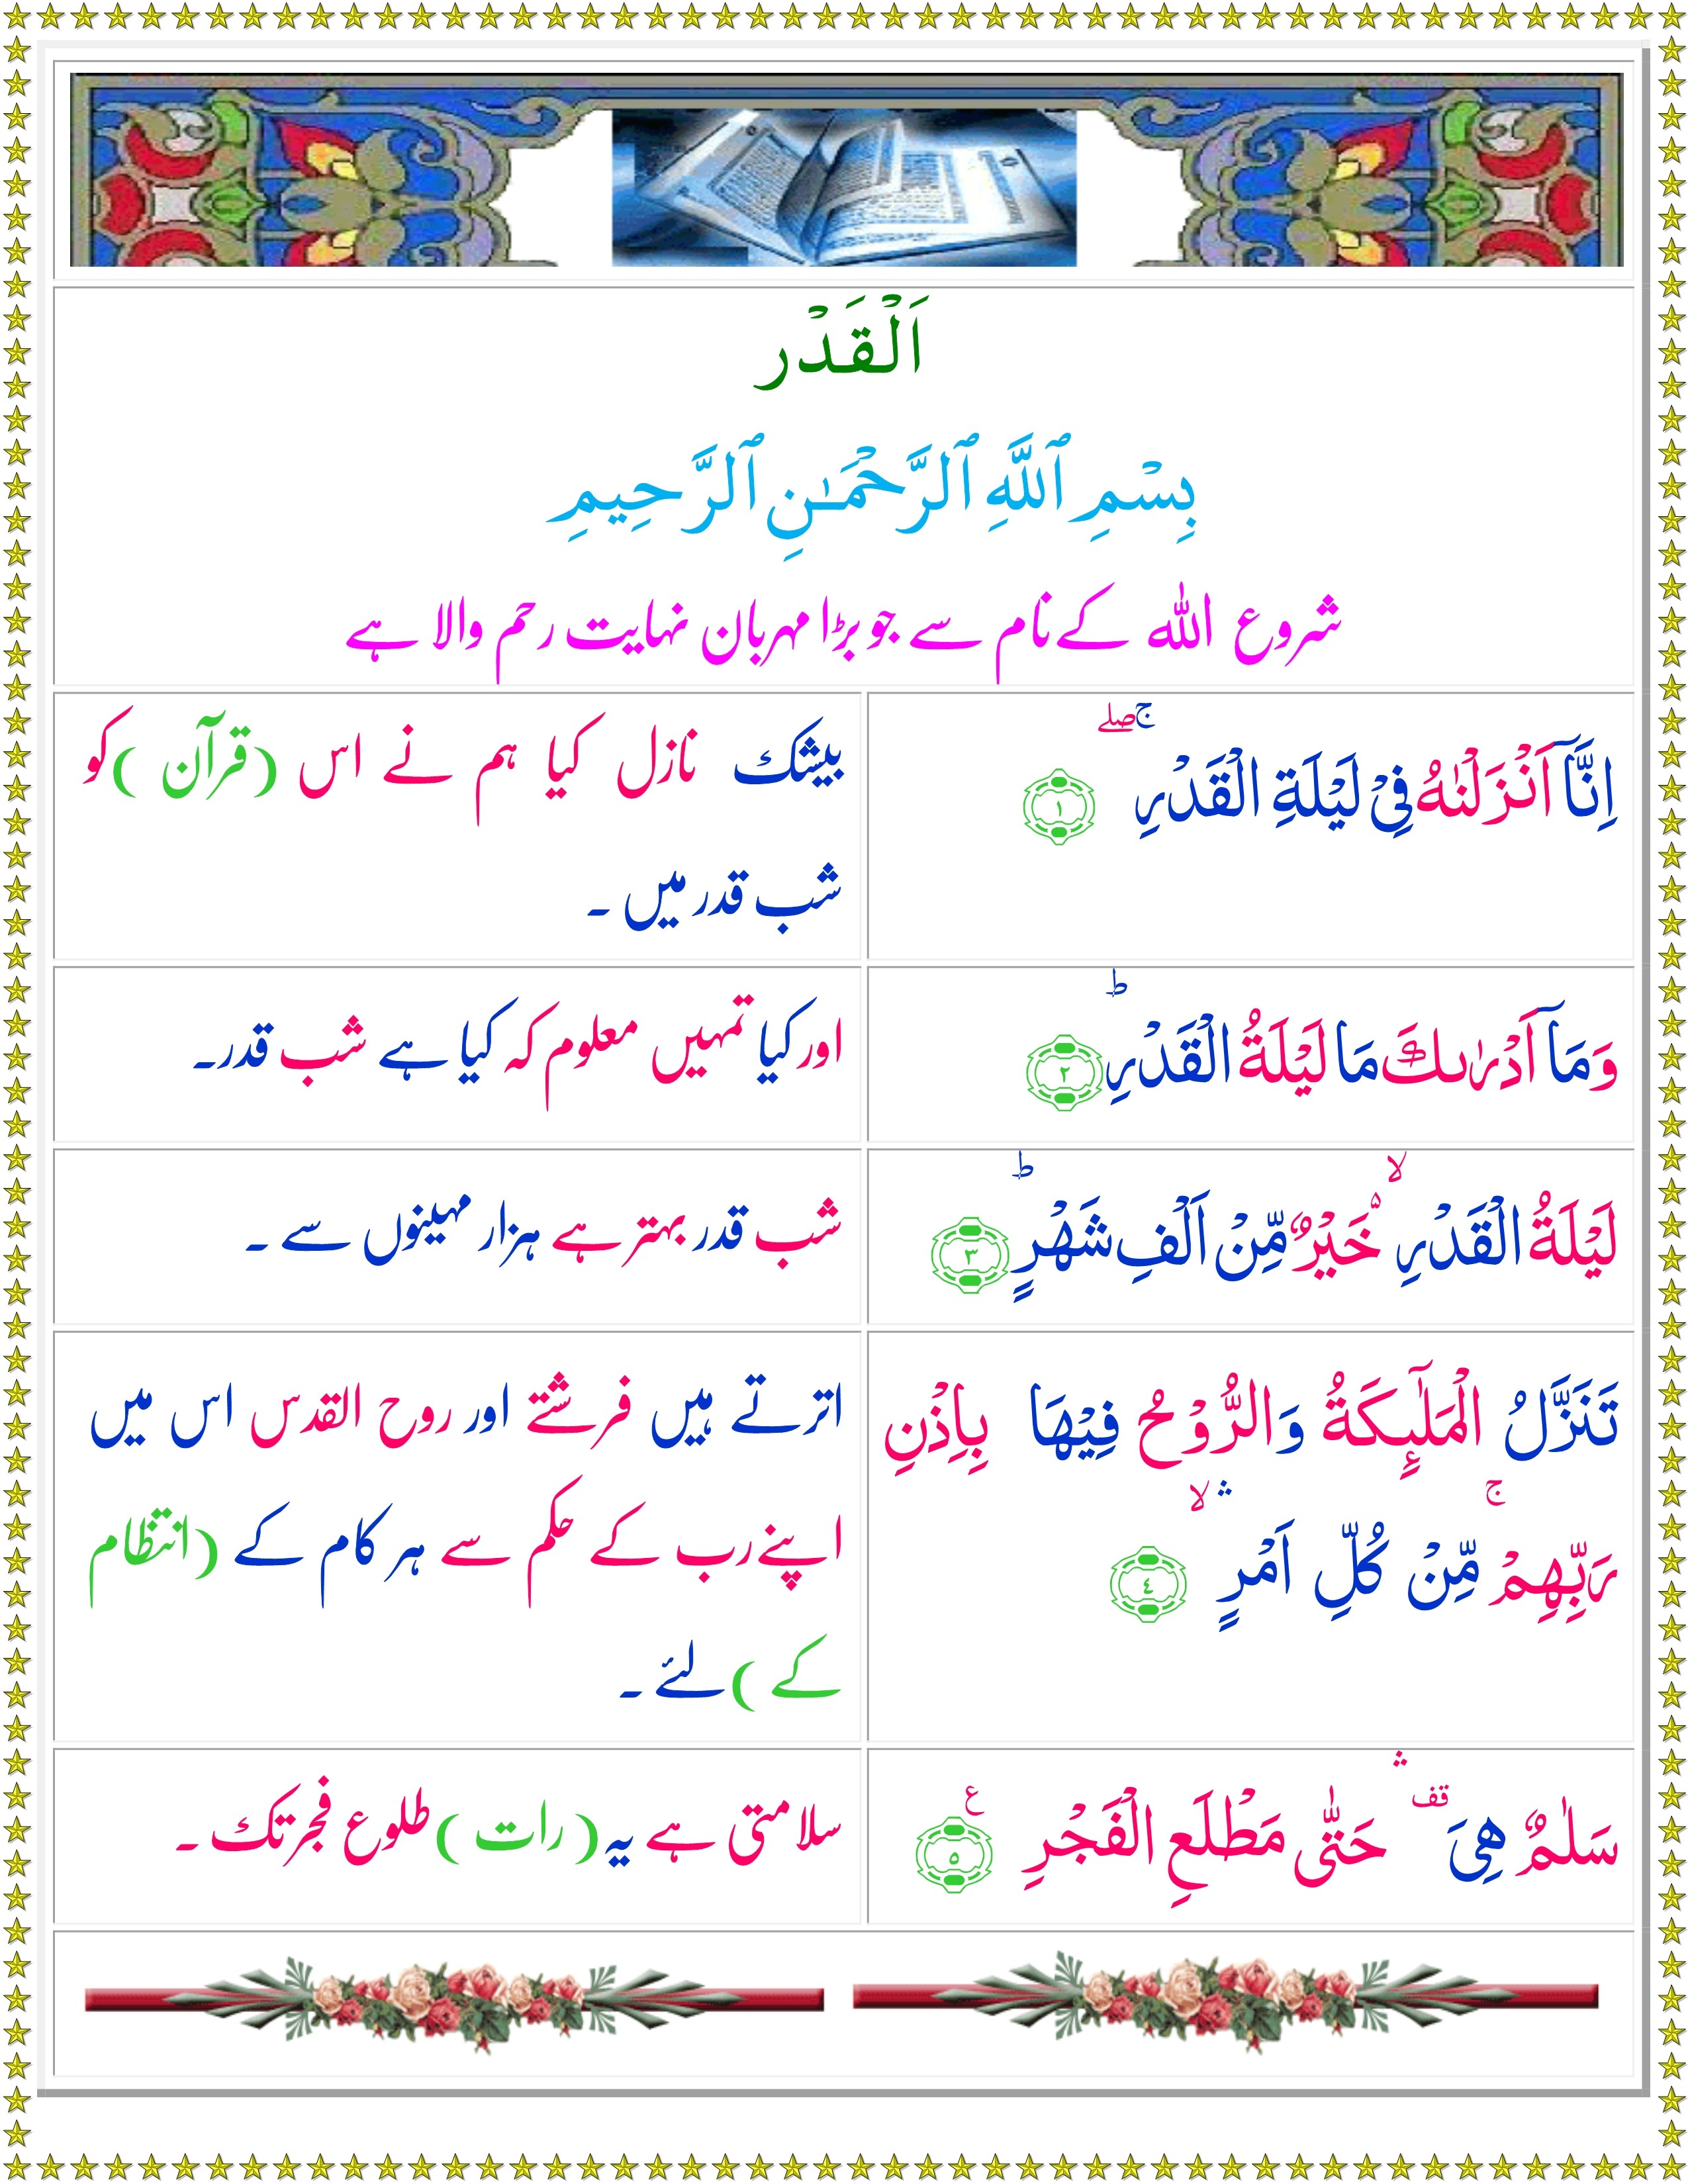 اَلْقَدْر
بِسْمِ ٱللَّهِ ٱلرَّحْمَـٰنِ ٱلرَّحِيمِ
شروع اللہ کے نام سے جو بڑا مہربان نہایت رحم والا ہے
اِنَّاۤ اَنْزَلْنٰهُ فِیْ لَیْلَةِ الْقَدْرِ ۚۖ ﴿١﴾
بیشک نازل کیا ہم نے اس (قرآن) کو
شب قدر میں ۔
وَمَاۤ اَدْرٰىكَ مَا لَیْلَةُ الْقَدْرِ ؕ ﴿٢﴾
اور کیا تمہیں معلوم کہ کیا ہے شب قدر۔
لَیْلَةُ الْقَدْرِ ۙ۬ خَیْرٌ مِّنْ اَلْفِ شَهْرٍ ؕ ﴿٣﴾
شب قدر بہتر ہے ہزار مہینوں سے ۔
تَنَزَّلُ الْمَلٰٓىِٕكَةُ وَالرُّوْحُ فِیْهَا بِاِذْنِ
رَبِّهِمْ ۚ مِّنْ كُلِّ اَمْرٍ ۙۛ ﴿٤﴾
اترتے ہیں فرشتے اور روح القدس اس میں
اپنے رب کے حکم سے ہر کام کے (انتظام
کے) لئے ۔
سَلٰمٌ هِیَ ۛ۫ حَتّٰی مَطْلَعِ الْفَجْرِ ﴿٥﴾ ع
سلامتی ہے یہ (رات) طلوع فجر تک ۔